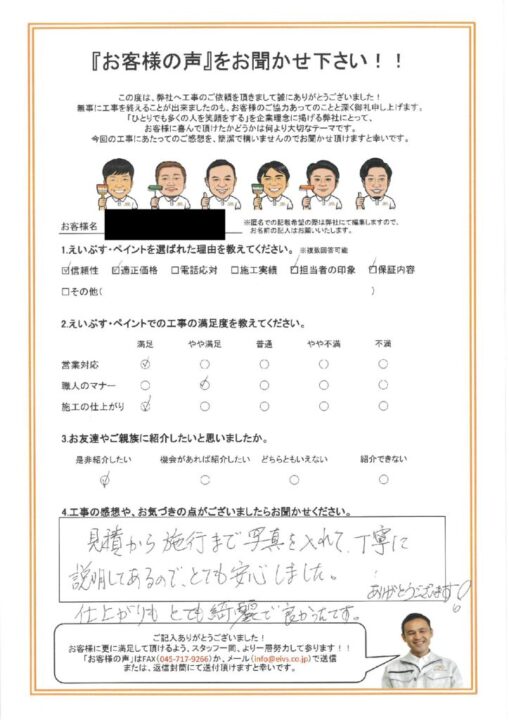 『お客様の声』をお聞かせ下さい！！
この度は、弊社へ工事のご依頼を頂きまして誠にありがとうございました！
無事に工事を終えることが出来ましたのも、お客様のご協力あってのことと深く御礼申し上げます。
「ひとりでも多くの人を笑顔をする」を企業理念に掲げる弊社にとって、
お客様に喜んで頂けたかどうかは何より大切なテーマです。
今回の工事にあたってのご感想を、簡潔で構いませんのでお聞かせ頂けますと幸いです。
お客様名
※匿名での記載希望の際は弊社にて編集しますので、
お名前の記入はお願いいたします。
1.えいぶす・ペイントを選ばれた理由を教えてください。 ※複数回答可能
☑信頼性 ☑適正価格 □電話応対 □施工実績 ☑担当者の印象 ☑保証内容
□その他( )
2.えいぶす・ペイントでの工事の満足度を教えてください。
満足 やや満足 普通 やや不満 不満
営業対応
職人のマナー
施工の仕上がり
3.お友達やご親族に紹介したいと思いましたか。
是非紹介したい 機会があれば紹介したい どちらともいえない 紹介できない
4.工事の感想や、お気づきの点がございましたらお聞かせください。
見積から施行まで写真を入れて、丁寧に
説明してあるので、とても安心しました。
仕上がりもとても綺麗で良かったです。
ありがとうございます！
ご記入ありがとうございました！
お客様に更に満足して頂けるよう、スタッフ一同、より一層努力して参ります！！
「お客様の声」はFAX(045-717-9266)か、メール(info@eivs.co.jp)で送信
または、返信封筒にて送付頂けますと幸いです。